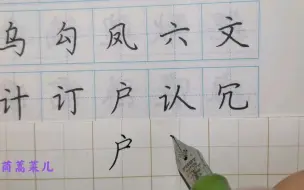 乌 勾 凤 六 文
计 订 户 认 冗
户
茼蒿菜儿